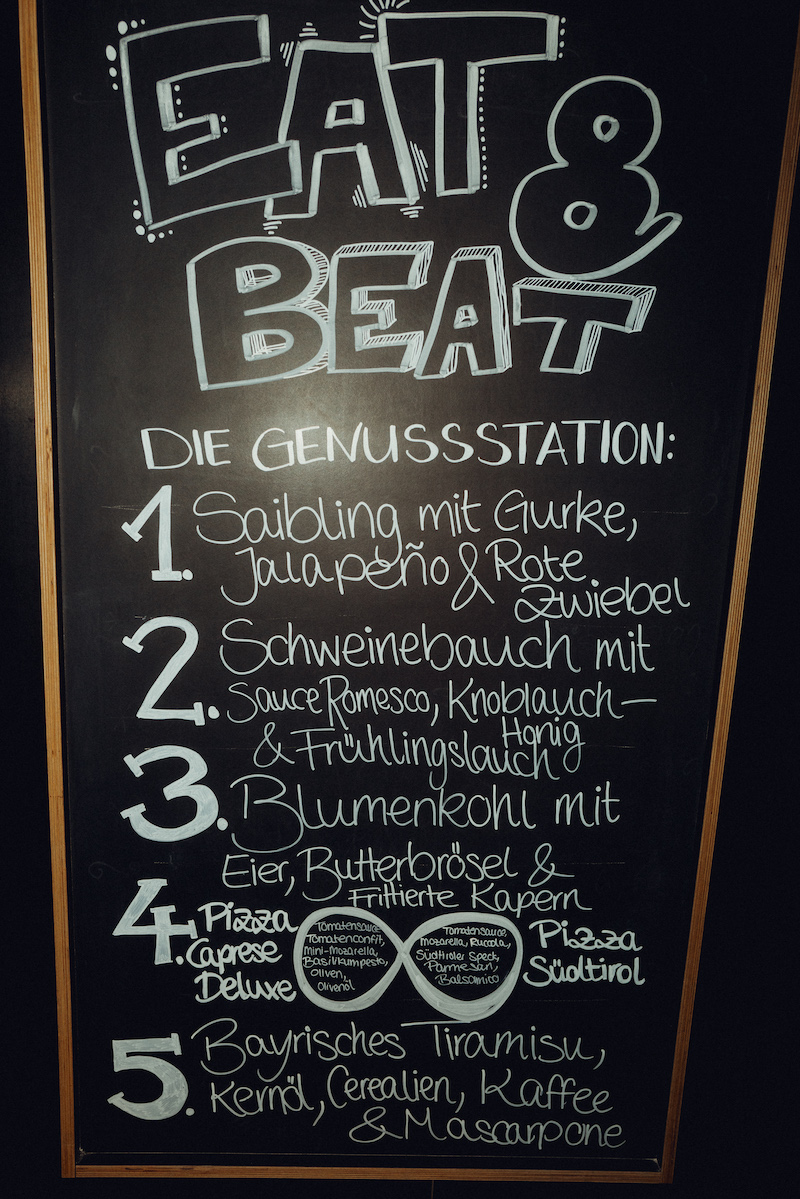 EAT
&
BEAT
DIE GENUSSSTATION:
1. Saibling mit Gurke,
Jalapeño & Rote
Zwiebel
2. Schweinebauch mit
Sauce Romesco, Knoblauch-
Honig
& Frühlingslauch
3. Blumenkohl mit
Eier, Butterbrösel &
Frittierte Kapern
4. Pizza
Caprese
Deluxe
Tomatensauce
Tomatenconfit,
Mini-Mozarella,
Basilikumpesto,
Oliven,
Olivenöl
Tomatensauce,
Mozarella, Ruccola,
Südtiroler Speck,
Parmesan,
Balsamico
Pizza
Südtirol
5. Bayrisches Tiramisu,
Kernöl, Cerealien, Kaffee
& Mascarpone